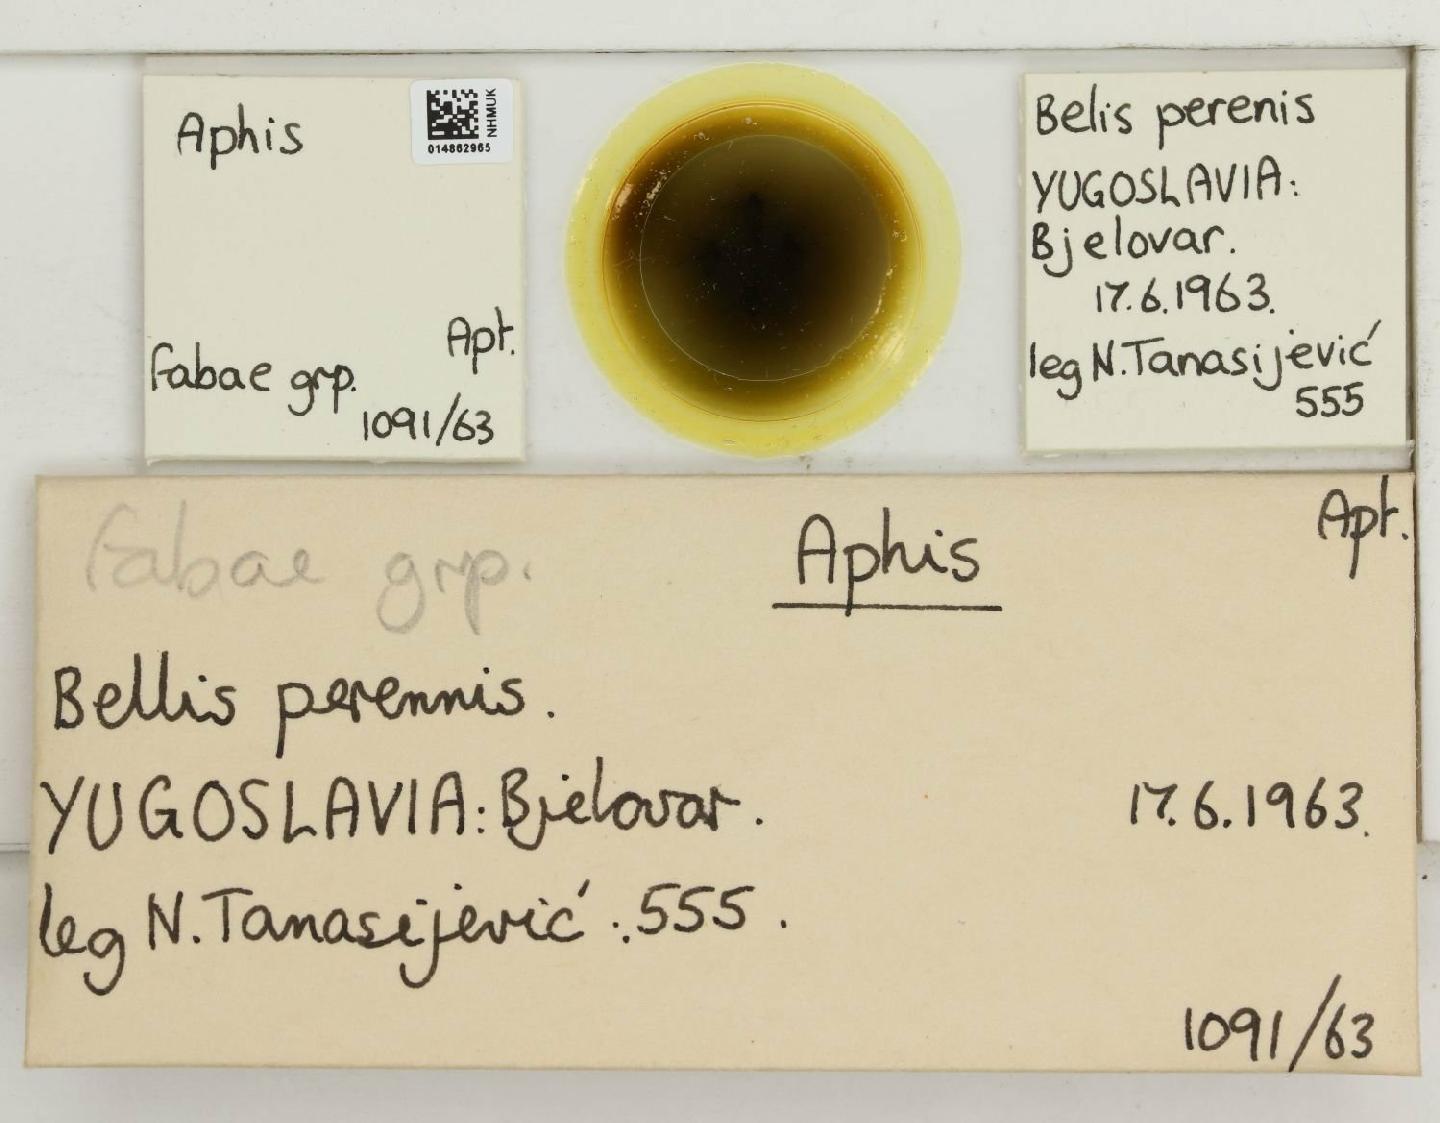 Aphis
NHMUK
014862965
Apt.
fabae grp.
1091/63
Belis perenis
YUGOSLAVIA:
Bjelovar.
17.6.1963.
leg N.Tanasijević
555
fabae grp.
Aphis
Apt.
Bellis perennis.
YUGOSLAVIA: Bjelovar.
17.6.1963.
leg N.Tanasijević :.555.
1091/63